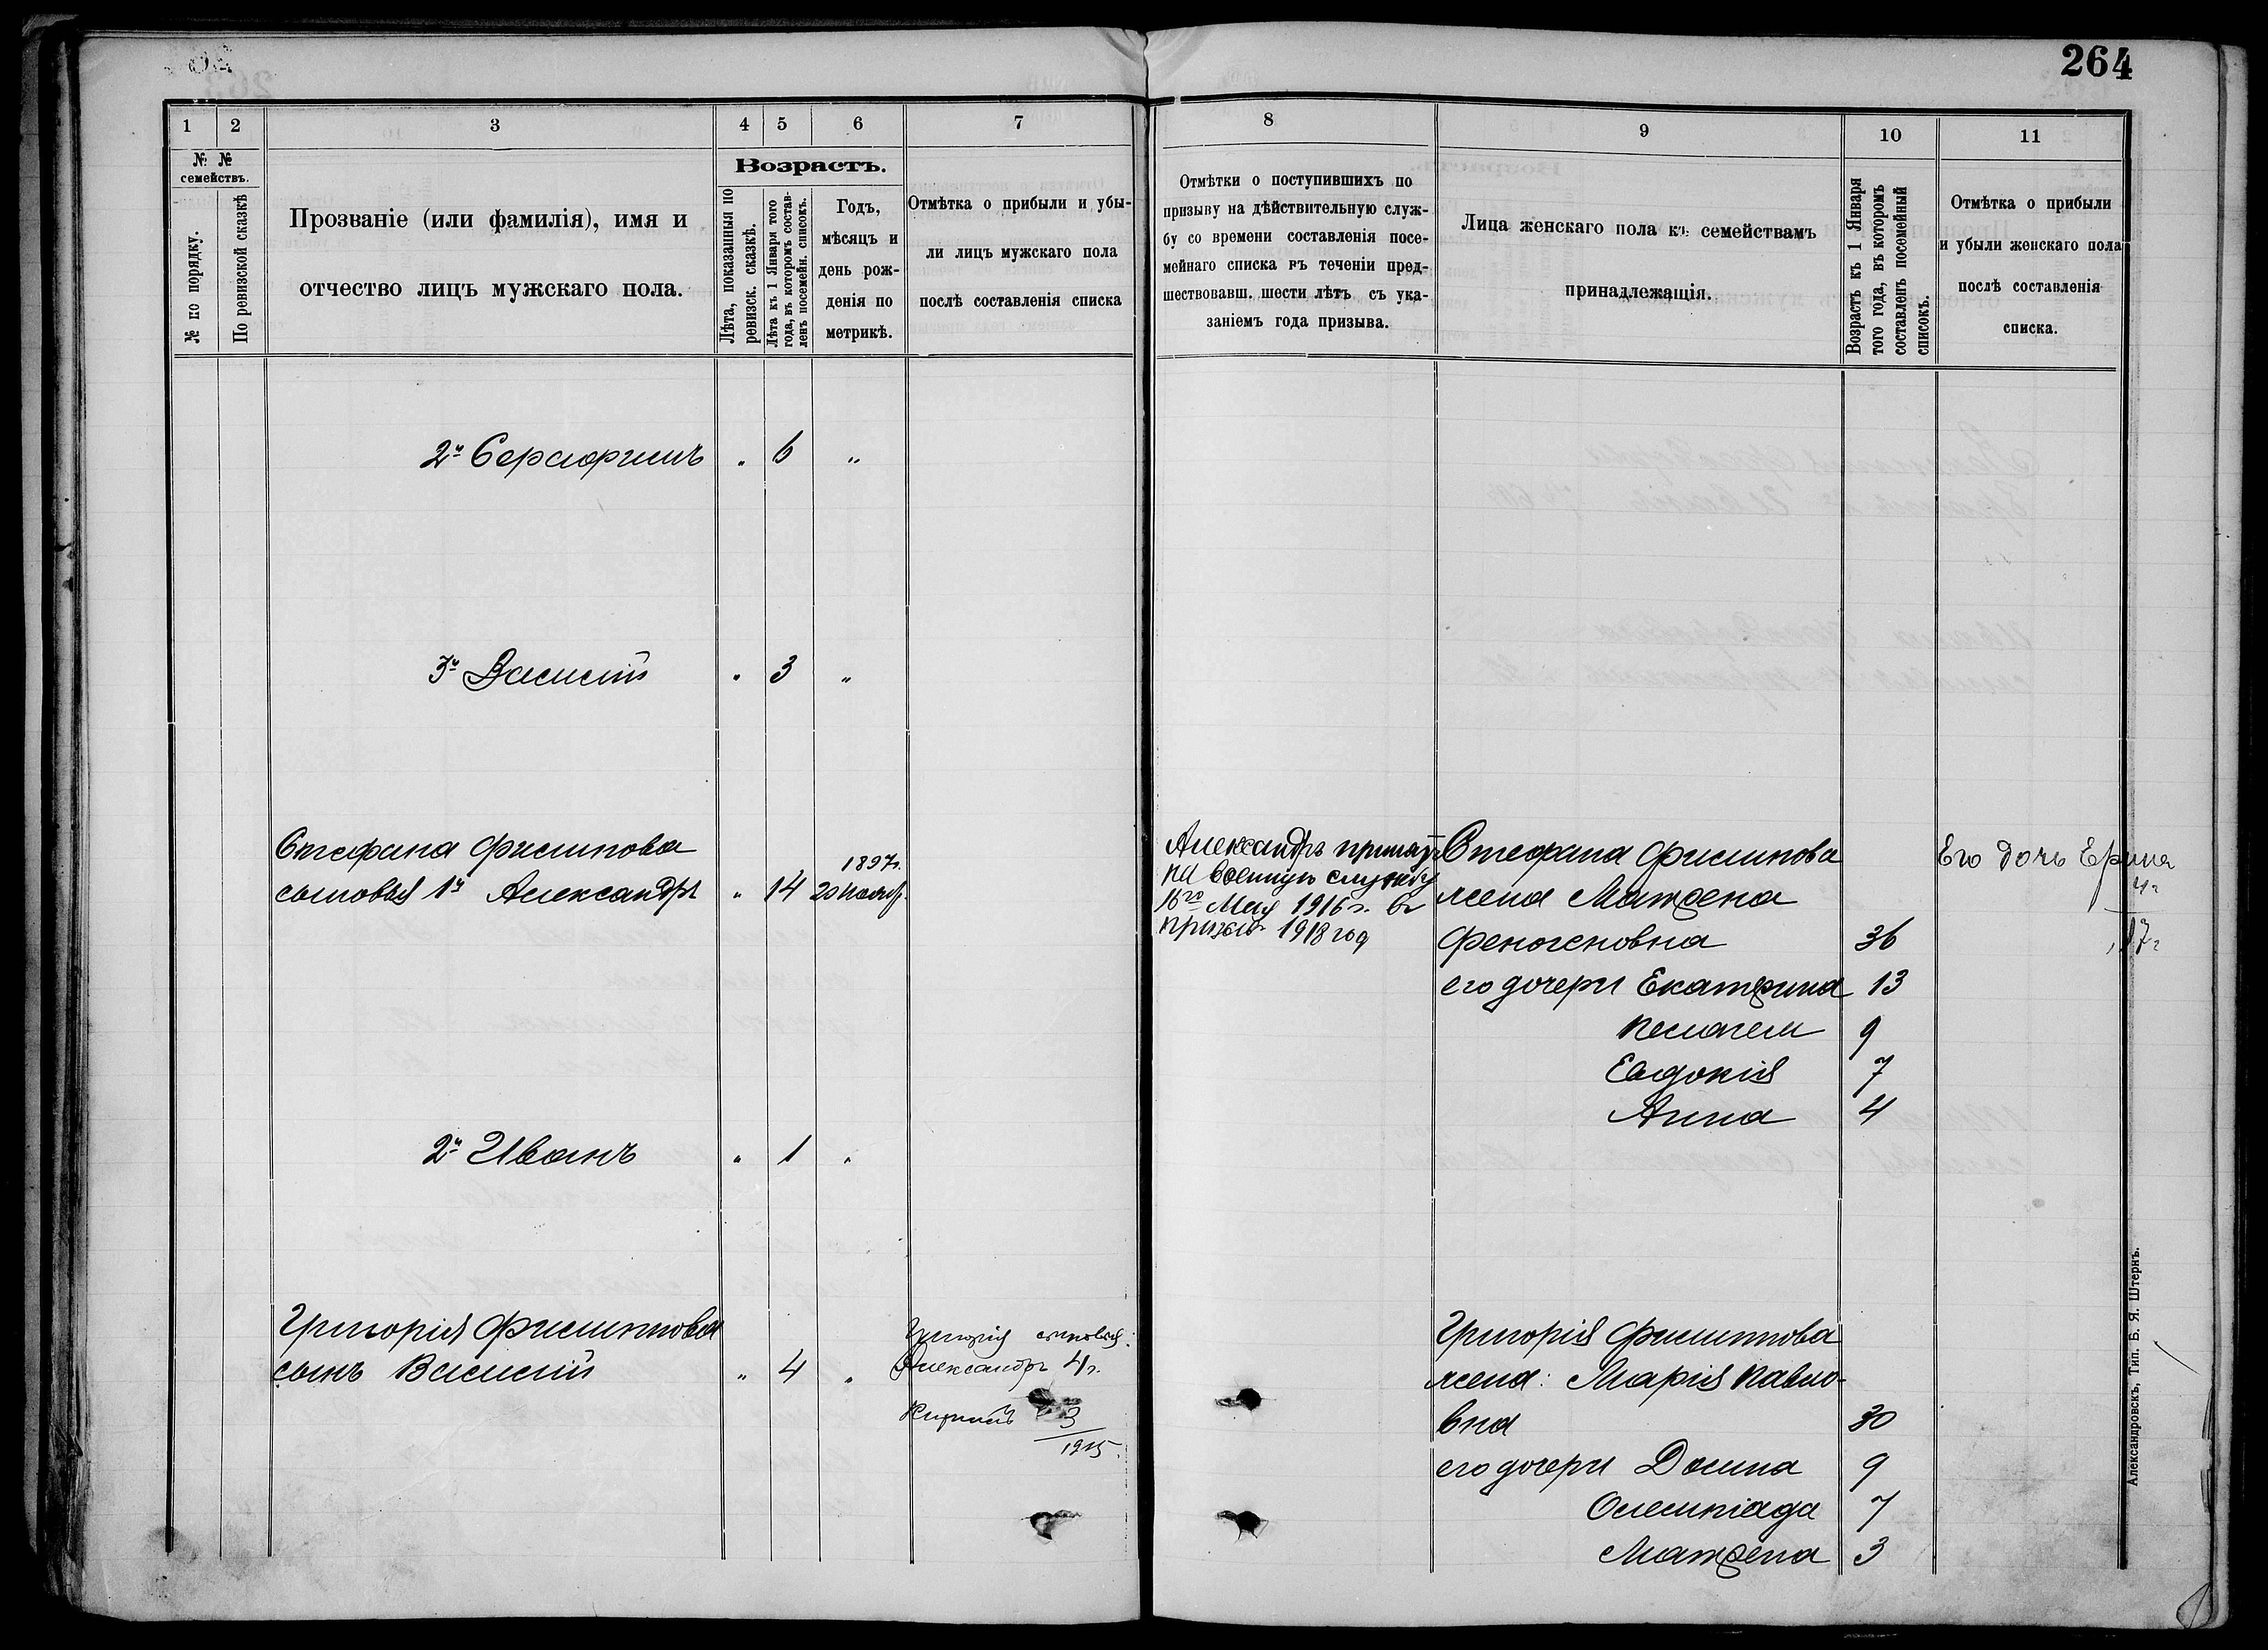 264
1 2 3 4 5 6 7
№ №
семействъ.
№ по порядку.
По ревизской сказкѣ
Прозваніе (или фамилія), имя и
отчество лицъ мужскаго пола.
Возрастъ.
Лѣта, показанныя по
ревизск. сказкѣ.
Лѣта къ 1 Января того
года, въ которомъ состав-
ленъ посемейн. списокъ.
Годъ,
мѣсяцъ и
день рож-
денія по
метрикѣ.
Отмѣтка о прибыли и убы-
ли лицъ мужскаго пола
послѣ составленія списка
2й Серафимъ " 6 "
3й Василій " 3 "
Стефана Филипова
1897г.
сыновья 1й Александръ " 14 20 нояб.
2й Иванъ " 1 "
Григорія Филиппова
сынъ Василій " 4 "
Григорія сыновья:
Александръ 4г.
Кирилъ 3
1915.
8 9 10 11
Отмѣтки о поступившихъ по
призыву на дѣйствительную служ-
бу со времени составленія посе-
мейнаго списка въ теченіи пред-
шествовавш. шести лѣтъ съ ука-
заніемъ года призыва.
Лица женскаго пола къ семействамъ
принадлежащія.
Возрастъ къ 1 Января
того года, въ которомъ
составленъ посемейный
списокъ.
Отмѣтка о прибыли
и убыли женскаго пола
послѣ составленія
списка.
Александръ принятъ
на военную службу
Мая 1916г. въ
призывъ 1918 год
Стефана Филипова
жена Матрена
Феногеновна 36
его дочери Екатерина 13
Пелагея 9
Евдокія 7
Анна 4
Его дочь Ерина
4г
17г
Григорія Филиппова
жена: Марія Павло-
вна 30
его дочери Домна 9
Олемпіада 7
Матрена 3
Александровскъ, Тип. Б. Я. Штернъ.